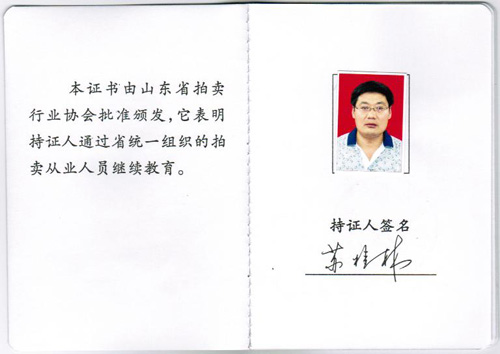 本证书由山东省拍卖
行业协会批准颁发，它表明
持证人通过省统一组织的拍
卖从业人员继续教育。
持证人签名
苏桂林